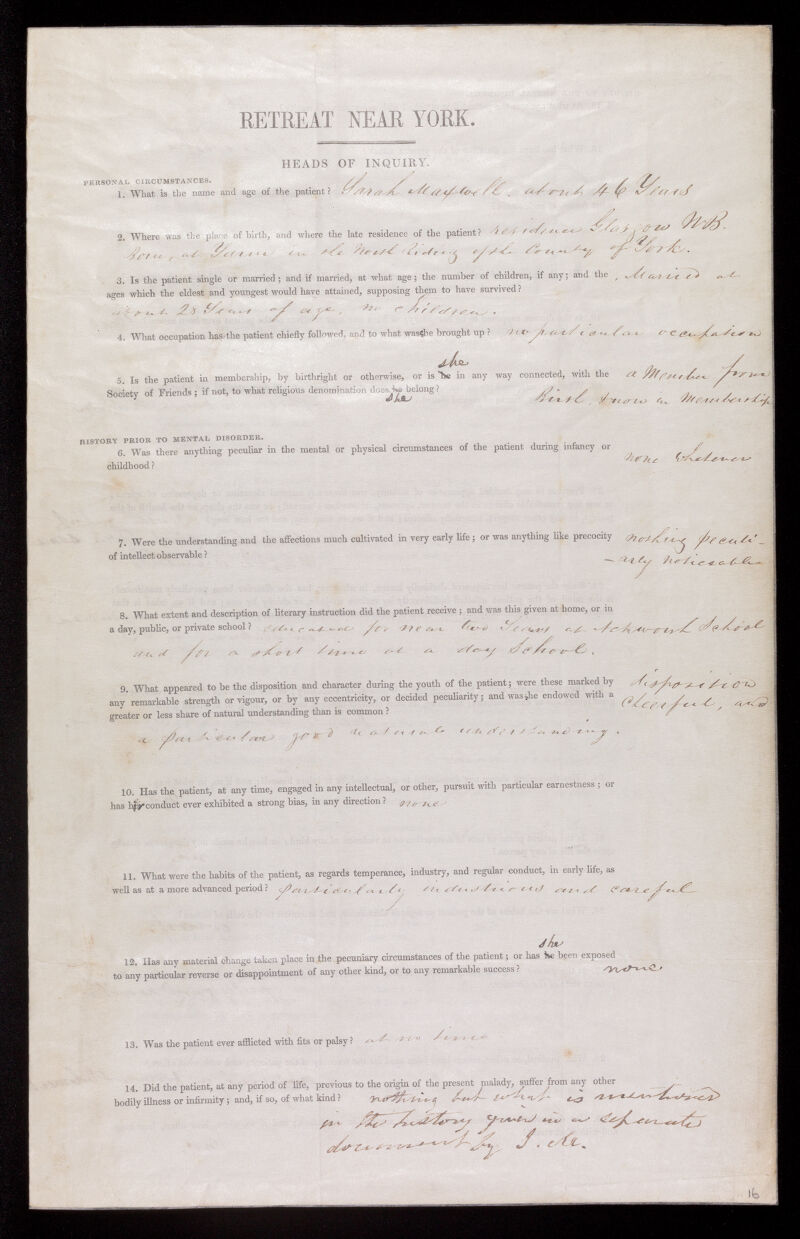 RETREAT NEAR YORK.
HEADS OF INQUIRY.
PERSONAL CIRCUMSTANCES.
1. What is the name and age of the patient? Sarah Maxwell. about 46 Years
2. Where was the place of birth, and where the late residence of the patient? residence Glasgow N.B.
born, at Yarm in the North Riding of the County of York.
3. Is the patient single or married; and if married, at what age; the number of children, if any; and the Married at
ages which the eldest and youngest would have attained, supposing them to have survived?
about 28 Years of age, no children.
4. What occupation has the patient chiefly followed, and to what was she brought up? no particular occupation
she
5. Is the patient in membership, by birthright or otherwise, or is he in any way connected, with the a Member from
Society of Friends; if not, to what religious denomination does he belong? Birth, & now in Membership
she
HISTORY PRIOR TO MENTAL DISORDER.
6. Was there anything peculiar in the mental or physical circumstances of the patient during infancy or none whatever
childhood?
7. Were the understanding and the affections much cultivated in very early life; or was anything like precocity nothing peculi-
of intellect observable? -arly noticeable
8. What extent and description of literary instruction did the patient receive; and was this given at home, or in
a day, public, or private school? educated for near two Years at Ackworth School
and for a short time at a day School.
9. What appeared to be the disposition and character during the youth of the patient; were these marked by disposition
any remarkable strength or vigour, or by any eccentricity, or decided peculiarity; and was she endowed with a cheerful, and
greater or less share of natural understanding than is common?
a particular good natural understanding.
10. Has the patient, at any time, engaged in any intellectual, or other, pursuit with particular earnestness; or
has her conduct ever exhibited a strong bias, in any direction? none
11. What were the habits of the patient, as regards temperance, industry, and regular conduct, in early life, as
well as at a more advanced period? particularly industrious and careful
she
12. Has any material change taken place in the pecuniary circumstances of the patient; or has he been exposed
to any particular reverse or disappointment of any other kind, or to any remarkable success? none
13. Was the patient ever afflicted with fits or palsy? at no time
14. Did the patient, at any period of life, previous to the origin of the present malady, suffer from any other
bodily illness or infirmity; and, if so, of what kind? nothing but what is mentioned
in the history given in a separate
document by
16